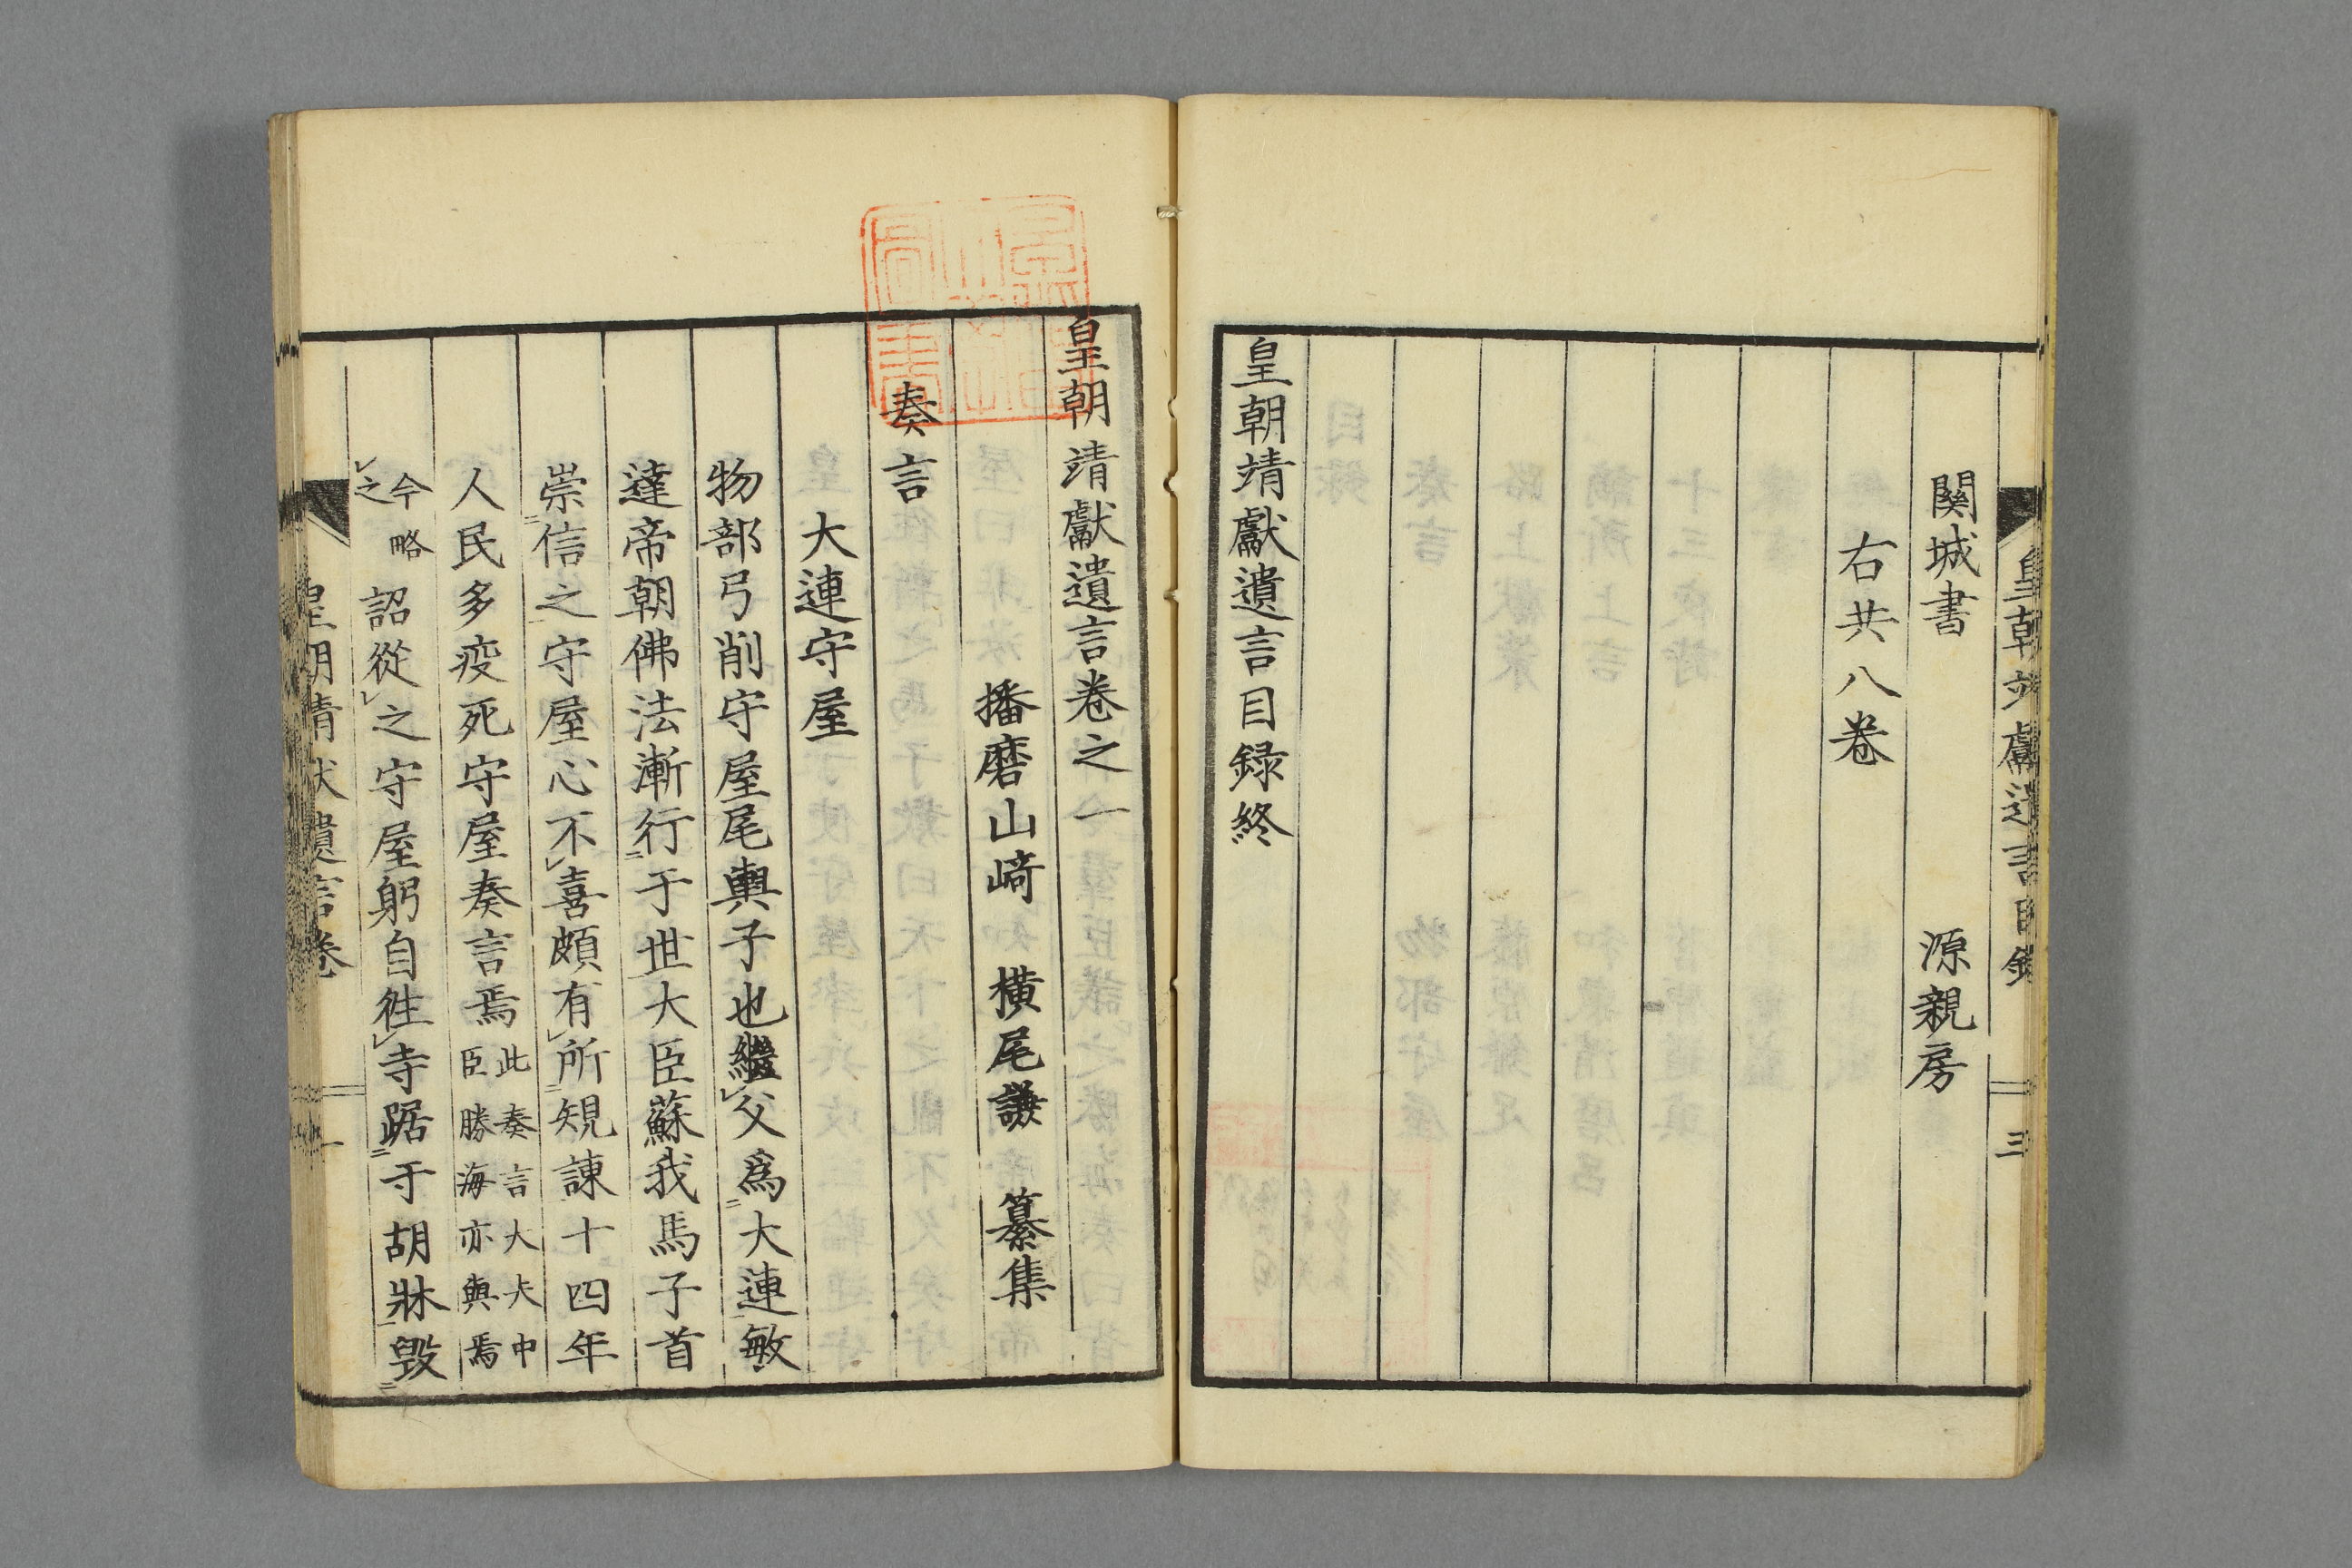 皇朝靖獻遺言目錄
三
關城書 源親房
右共八卷
皇朝靖獻遺言目録終
皇朝靖獻遺言卷之一
播磨山﨑 橫尾謙 纂集
奏言
大連守屋
物部弓削守屋尾輿子也繼父爲大連敏
達帝朝佛法漸行于世大臣蘇我馬子首
崇信之守屋心不喜頗有所規諫十四年
人民多疫死守屋奏言焉此奏言大夫中
臣勝海亦與焉
今略
之
詔從之守屋躬自徃寺踞于胡牀毀
皇朝靖獻遺言卷
一